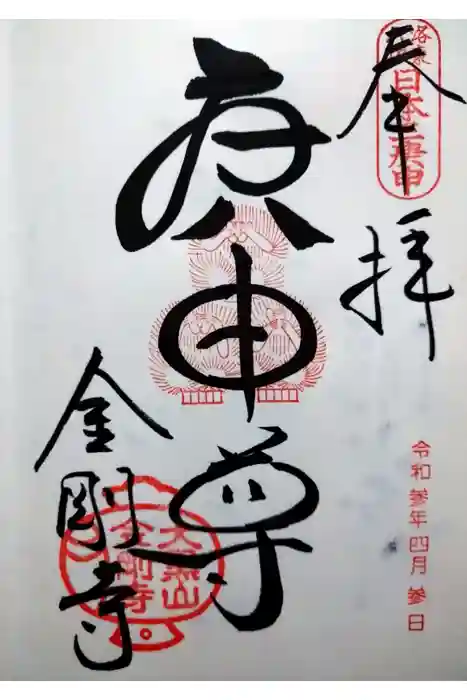 奉拝
日本三庚申
令和参年四月参日
庚申尊
金剛寺
大黒山
金剛寺